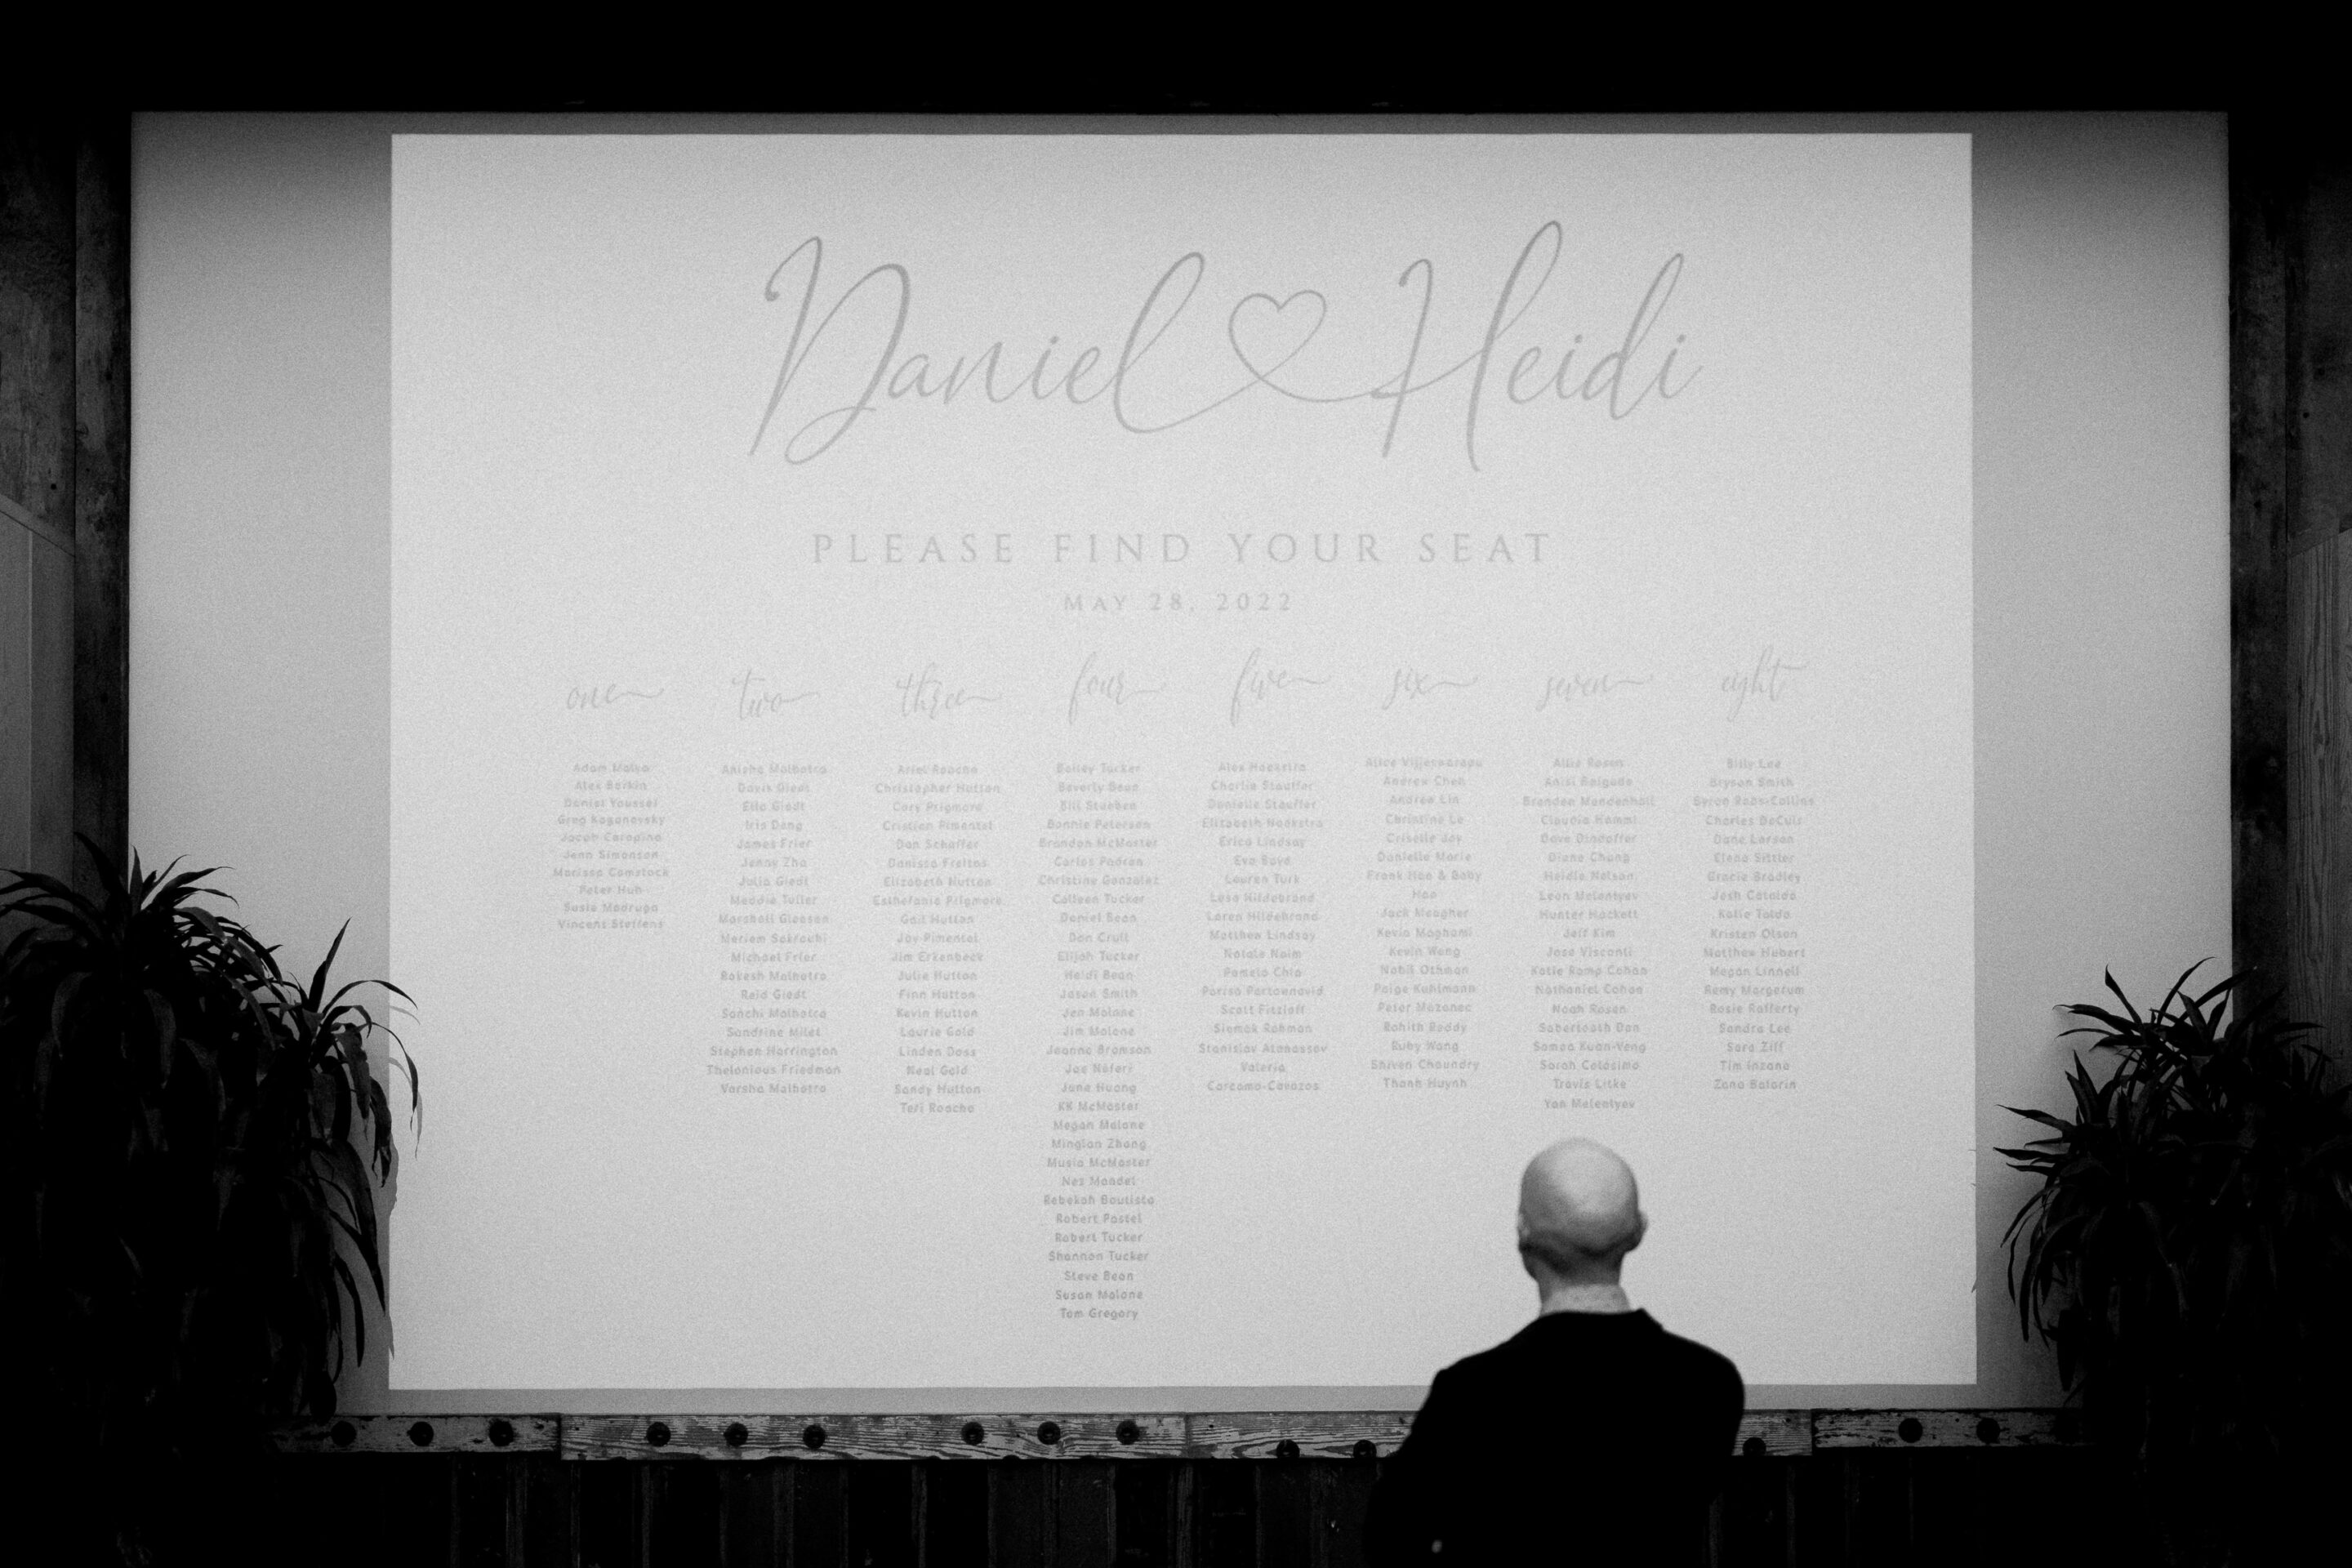 Daniel Heidi
PLEASE FIND YOUR SEAT
MAY 28, 2022
one two three four five six seven eight
Adam
Alex
Daniel Youssef
Greg Kogonovsky
Jacob
Jenn Simonson
Marissa Comstock
Peter Huh
Susie Madruga
Vincent Steffens
Anisha Malhotra
Davis Giedt
Ella Giedt
Iris Dong
James Frier
Jenny Zha
Julia Giedt
Maddie Toller
Marshall Gleason
Mariem
Michael Frier
Rakesh Malhotra
Reid Giedt
Sanchi Malhotra
Sandrine Milet
Stephen Harrington
Thelonious Friedman
Varsha Malhotra
Ariel Roache
Christopher Hutton
Cory Prigmore
Cristian Pimentel
Dan Schaffer
Danissa Freitas
Elizabeth Hutton
Esthefanie Prigmore
Gail Hutton
Joy Pimentel
Jim Erkenbeck
Julie Hutton
Finn Hutton
Kevin Hutton
Laurie Gold
Linden Doss
Neal Gold
Sandy Hutton
Teri Roache
Bailey Tucker
Beverly Bean
Bill Stueben
Bonnie Petersen
Brandon McMaster
Carlos Padron
Christine Gonzalez
Colleen Tucker
Daniel Bean
Dan Crull
Elijah Tucker
Heidi Bean
Jason Smith
Jen Malone
Jim Malone
Joanne Bramson
Joe Neferi
June Huang
KK McMaster
Megan Malone
Minglan Zhang
Musia McMaster
Nez Mandel
Rebekah Bautista
Robert Pastel
Robert Tucker
Shannon Tucker
Steve Bean
Susan Malone
Tom Gregory
Alex Hoekstra
Charlie Stauffer
Danielle Stauffer
Elizabeth Hoekstra
Erica Lindsay
Eva Boyd
Lauren Turk
Lesa Hildebrand
Loren Hildebrand
Matthew Lindsay
Natale Naim
Pamela Chia
Parisa Partownavid
Scott Fitzloff
Siamak Rahman
Stanislav Atanassov
Valeria
Carcamo-Cavazos
Alice Vijjeswarapu
Andrew Chen
Andrew Lin
Christine Le
Criselle Jay
Danielle Marie
Frank Hao & Baby
Hao
Jack Meagher
Kevin Moghami
Kevin Wang
Nabil Othman
Paige Kuhlmann
Peter Mazanec
Rohith Reddy
Ruby Wang
Shiven Chaundry
Thanh Huynh
Allie Rosen
Anisi Baigude
Brenden Mendenhall
Claudia Hammi
Dave Dindoffer
Diana Chung
Heidie Nelson
Leon Melentyev
Hunter Hackett
Jeff Kim
Jose Visconti
Katie Romp Cohan
Nathaniel Cohan
Noah Rosen
Sabertooth Dan
Samea Kuan-Veng
Sarah Colosimo
Travis Litke
Yan Melentyev
Billy Lee
Bryson Smith
Byron Raos-Collins
Charles DeCuir
Dane Larson
Elena Sittler
Gracie Bradley
Josh Cataldo
Katie Toldo
Kristen Olson
Matthew Hubert
Megan Linnell
Remy Margerum
Rosie Rafferty
Sandra Lee
Sara Ziff
Tim Inzana
Zana Balarin